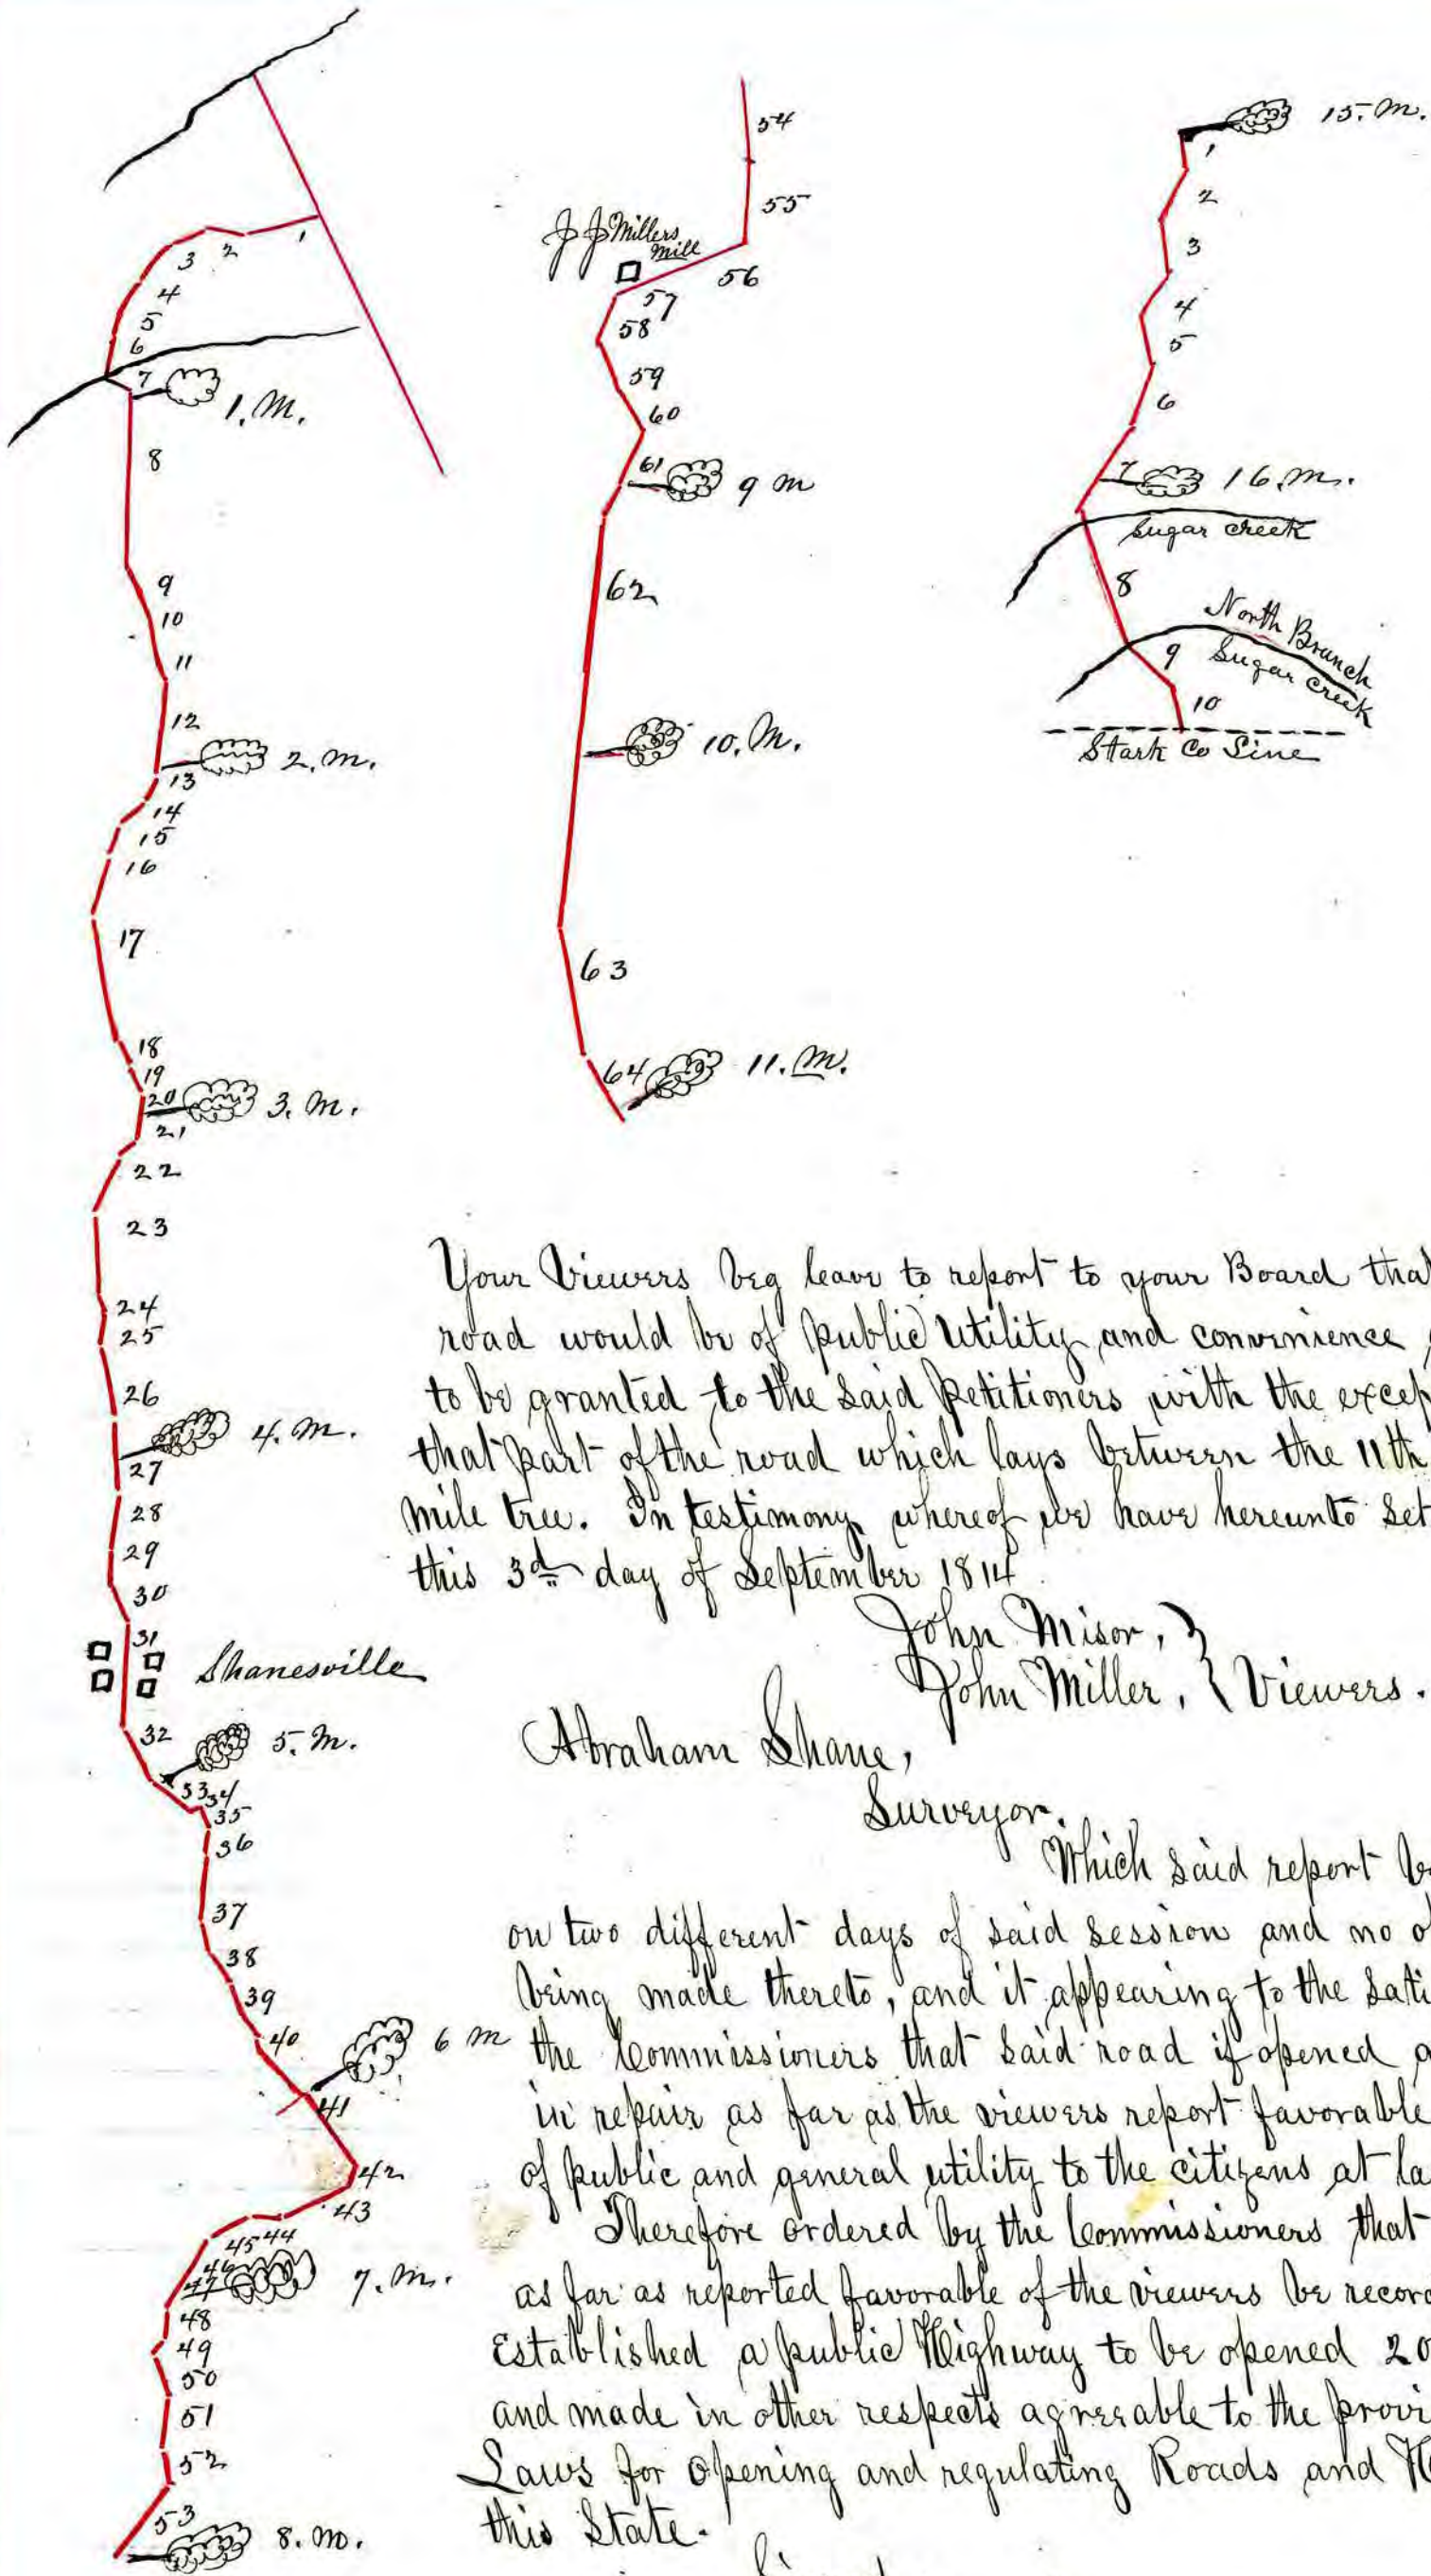 1
2
3
4
5
6
7
1. M.
8
9
10
11
12
2. M.
13
14
15
16
17
18
19
20
3. M.
21
22
23
24
25
26
4. M.
27
28
29
30
31
Shanesville
32
5. M.
33
34
35
36
37
38
39
40
6 M
41
42
43
44
45
46
47
7. M.
48
49
50
51
52
53
8. M.
54
55
J J Millers
Mill
56
57
58
59
60
61
9 M
62
10. M.
63
64
11. M.
15. M.
1
2
3
4
5
6
7
16. M.
Sugar Creek
8
North Branch
Sugar Creek
9
10
Stark Co Line
Your Viewers beg leave to report to your Board tha
road would be of public utility and convenience
to be granted to the said Petitioners with the excep
that part of the road which lays between the 11th
mile tree. In testimony whereof we have hereunto set
this 3d day of September 1814
John Misor,
John Miller, } Viewers.
Abraham Shane,
Surveyor.
Which said report b
on two different days of said session and no o
being made thereto, and it appearing to the sati
the Commissioners that said road if opened a
in repair as far as the viewers report favorable
of public and general utility to the citizens at la
Therefore ordered by the Commissioners that
as far as reported favorable of the viewers be recor
Established a public Highway to be opened 20
and made in other respects agreeable to the provi
Laws for opening and regulating Roads and H
this State.